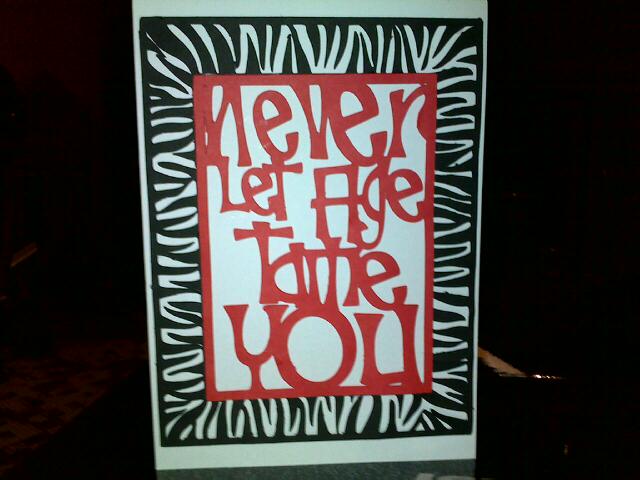 never
Let Age
Tame
YOU